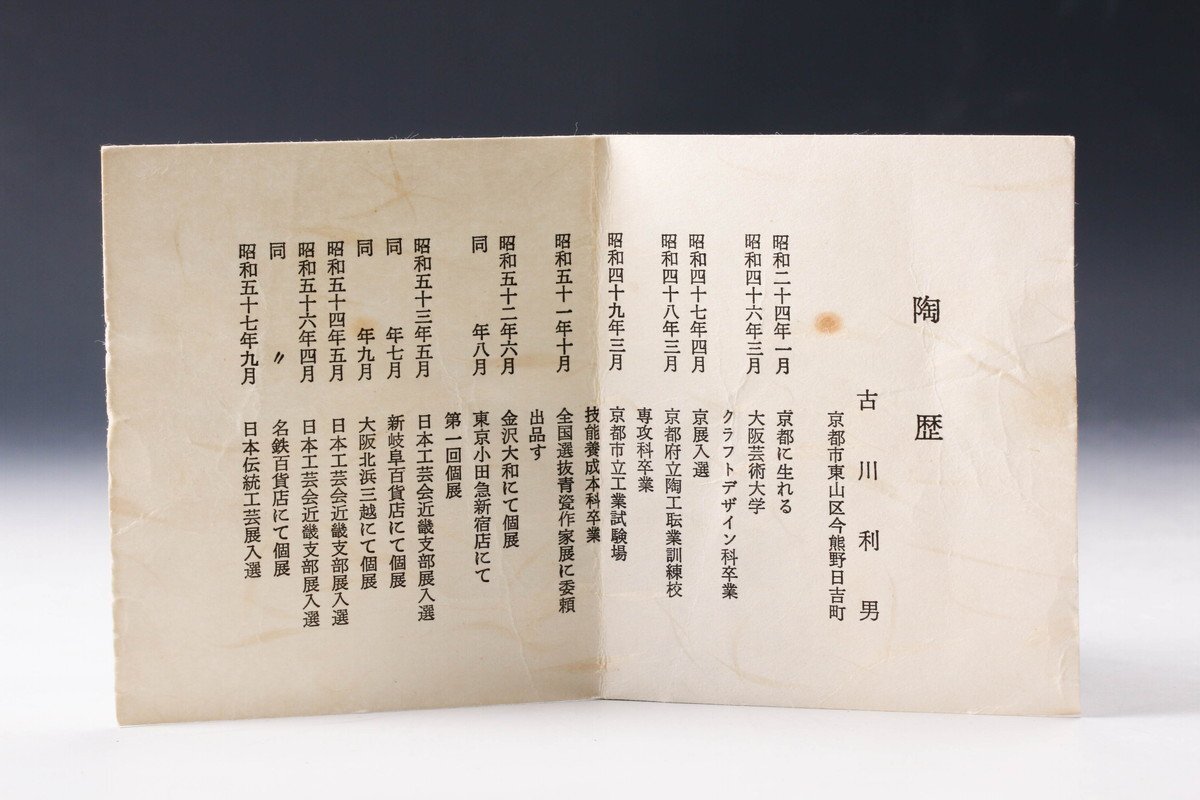 陶歴
古川利男
京都市東山区今熊野日吉町
昭和二十四年一月 京都に生れる
昭和四十六年三月 大阪芸術大学
クラフトデザイン科卒業
昭和四十七年四月 京展入選
昭和四十八年三月 京都府立陶工転業訓練校
専攻科卒業
昭和四十九年三月 京都市立工業試験場
技能養成本科卒業
昭和五十一年十月 全国選抜青瓷作家展に委頼
出品す
昭和五十二年六月 金沢大和にて個展
同 年八月 東京小田急新宿店にて
第一回個展
昭和五十三年五月 日本工芸会近畿支部展入選
同 年七月 新岐阜百貨店にて個展
同 年九月 大阪北浜三越にて個展
昭和五十四年五月 日本工芸会近畿支部展入選
昭和五十六年四月 日本工芸会近畿支部展入選
同 〃 名鉄百貨店にて個展
昭和五十七年九月 日本伝統工芸展入選